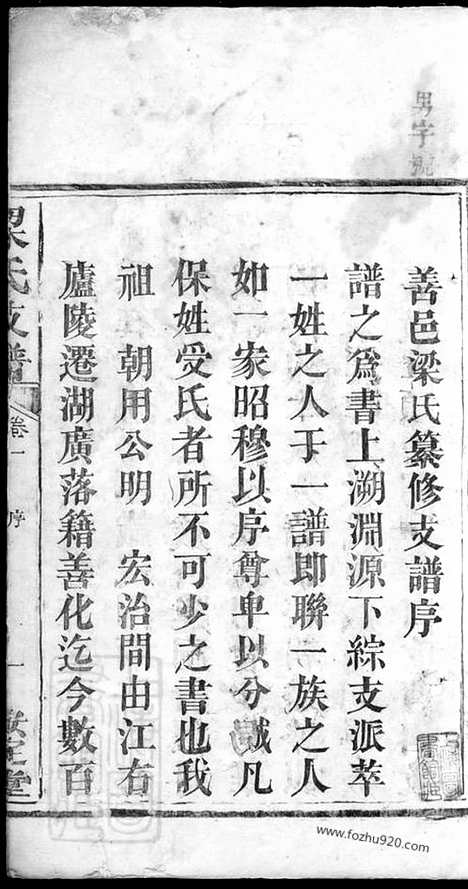 男字號
善邑梁氏纂修支譜序
譜之爲書上溯淵源下綜支派萃
一姓之人于一譜卽聯一族之人
如一家昭穆以序尊卑以分誠凡
保姓受氏者所不可少之書也我
祖　朝用公明　宏治間由江右
廬陵遷湖廣落籍善化迄今數百
梁氏支譜
卷一
序
一
堂
www.fozhu920.com